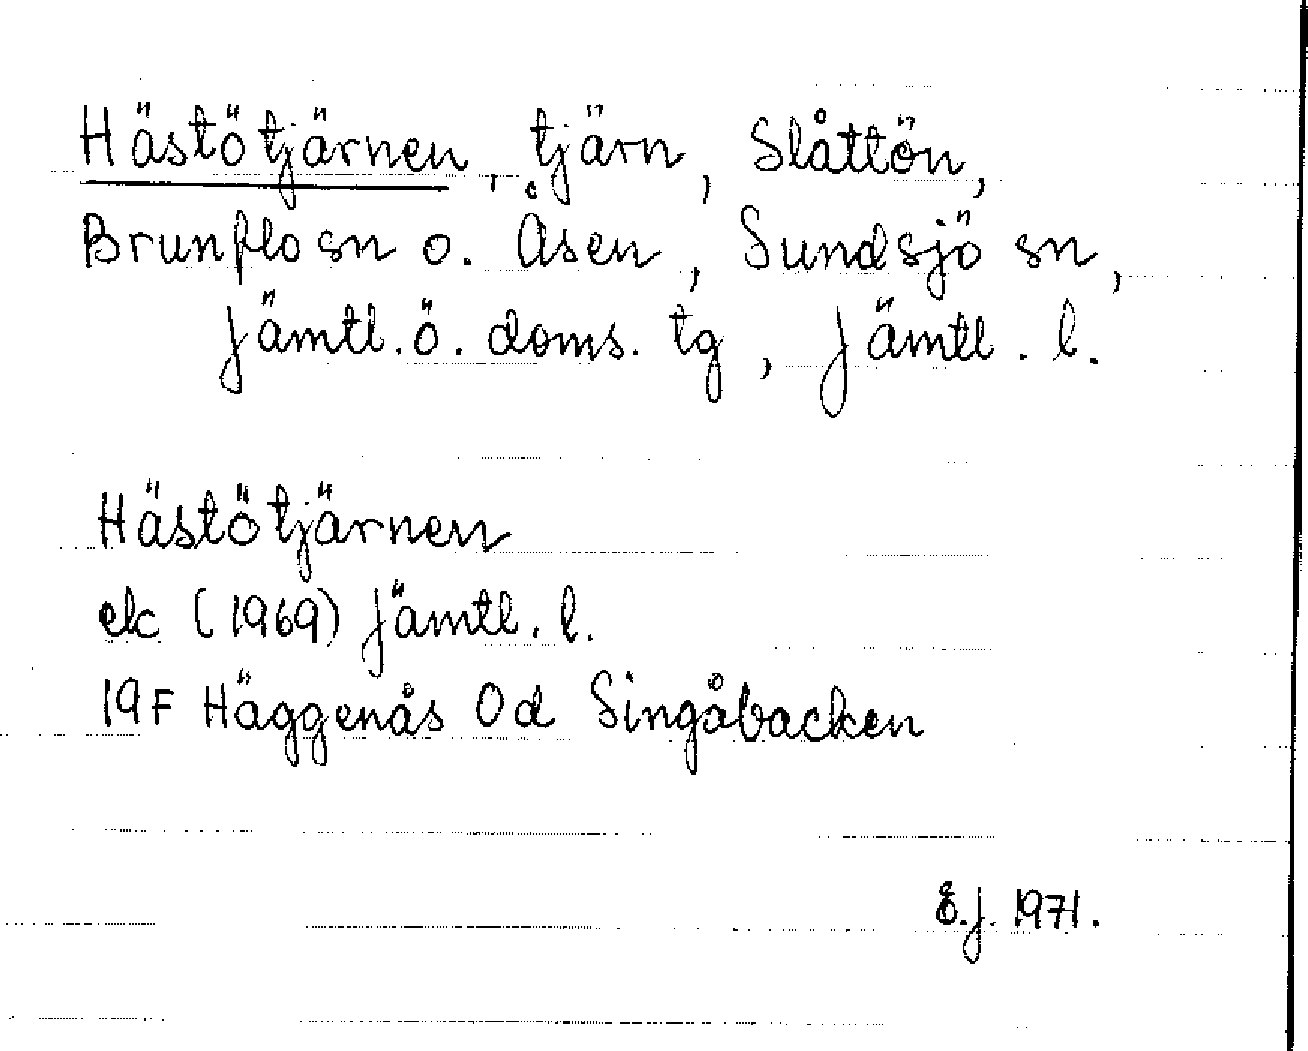 Hästötjärnen, tjärn, Slåttön,
Brunflo sn o. Åsen, Sundsjö sn,
Jämtl. ö. doms. tg, Jämtl. l.
Hästötjärnen
ek (1969) Jämtl. l.
19F Häggenås 0d Singåbacken
E.J. 1971.